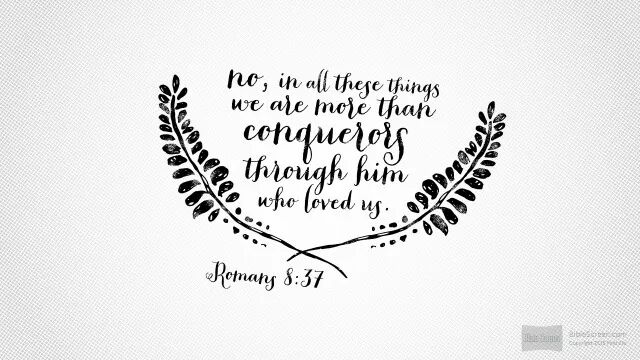 no, in all these things
we are more than
conquerors
through him
who loved us.
Romans 8:37
BibleScreen.com